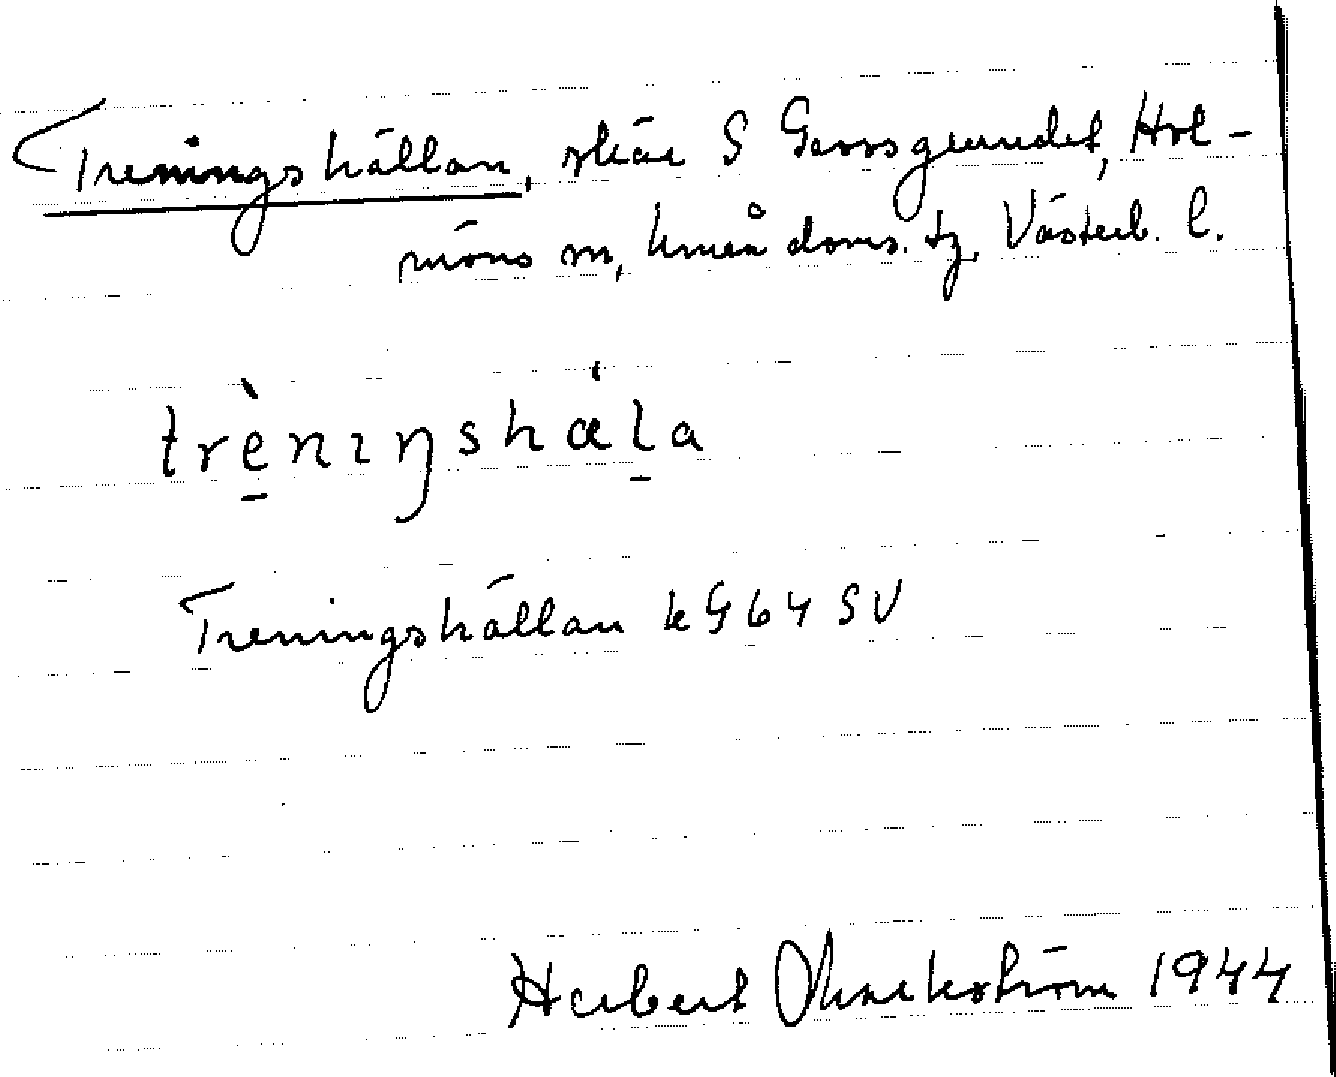 Treningshällan, skär S Gerosgrundet, Hol-
möns sn, Umeå doms. tg, Västerb. l.
trè̱nıŋshæḻa
Treningshällan kG64SV
Herbert Markström 1944